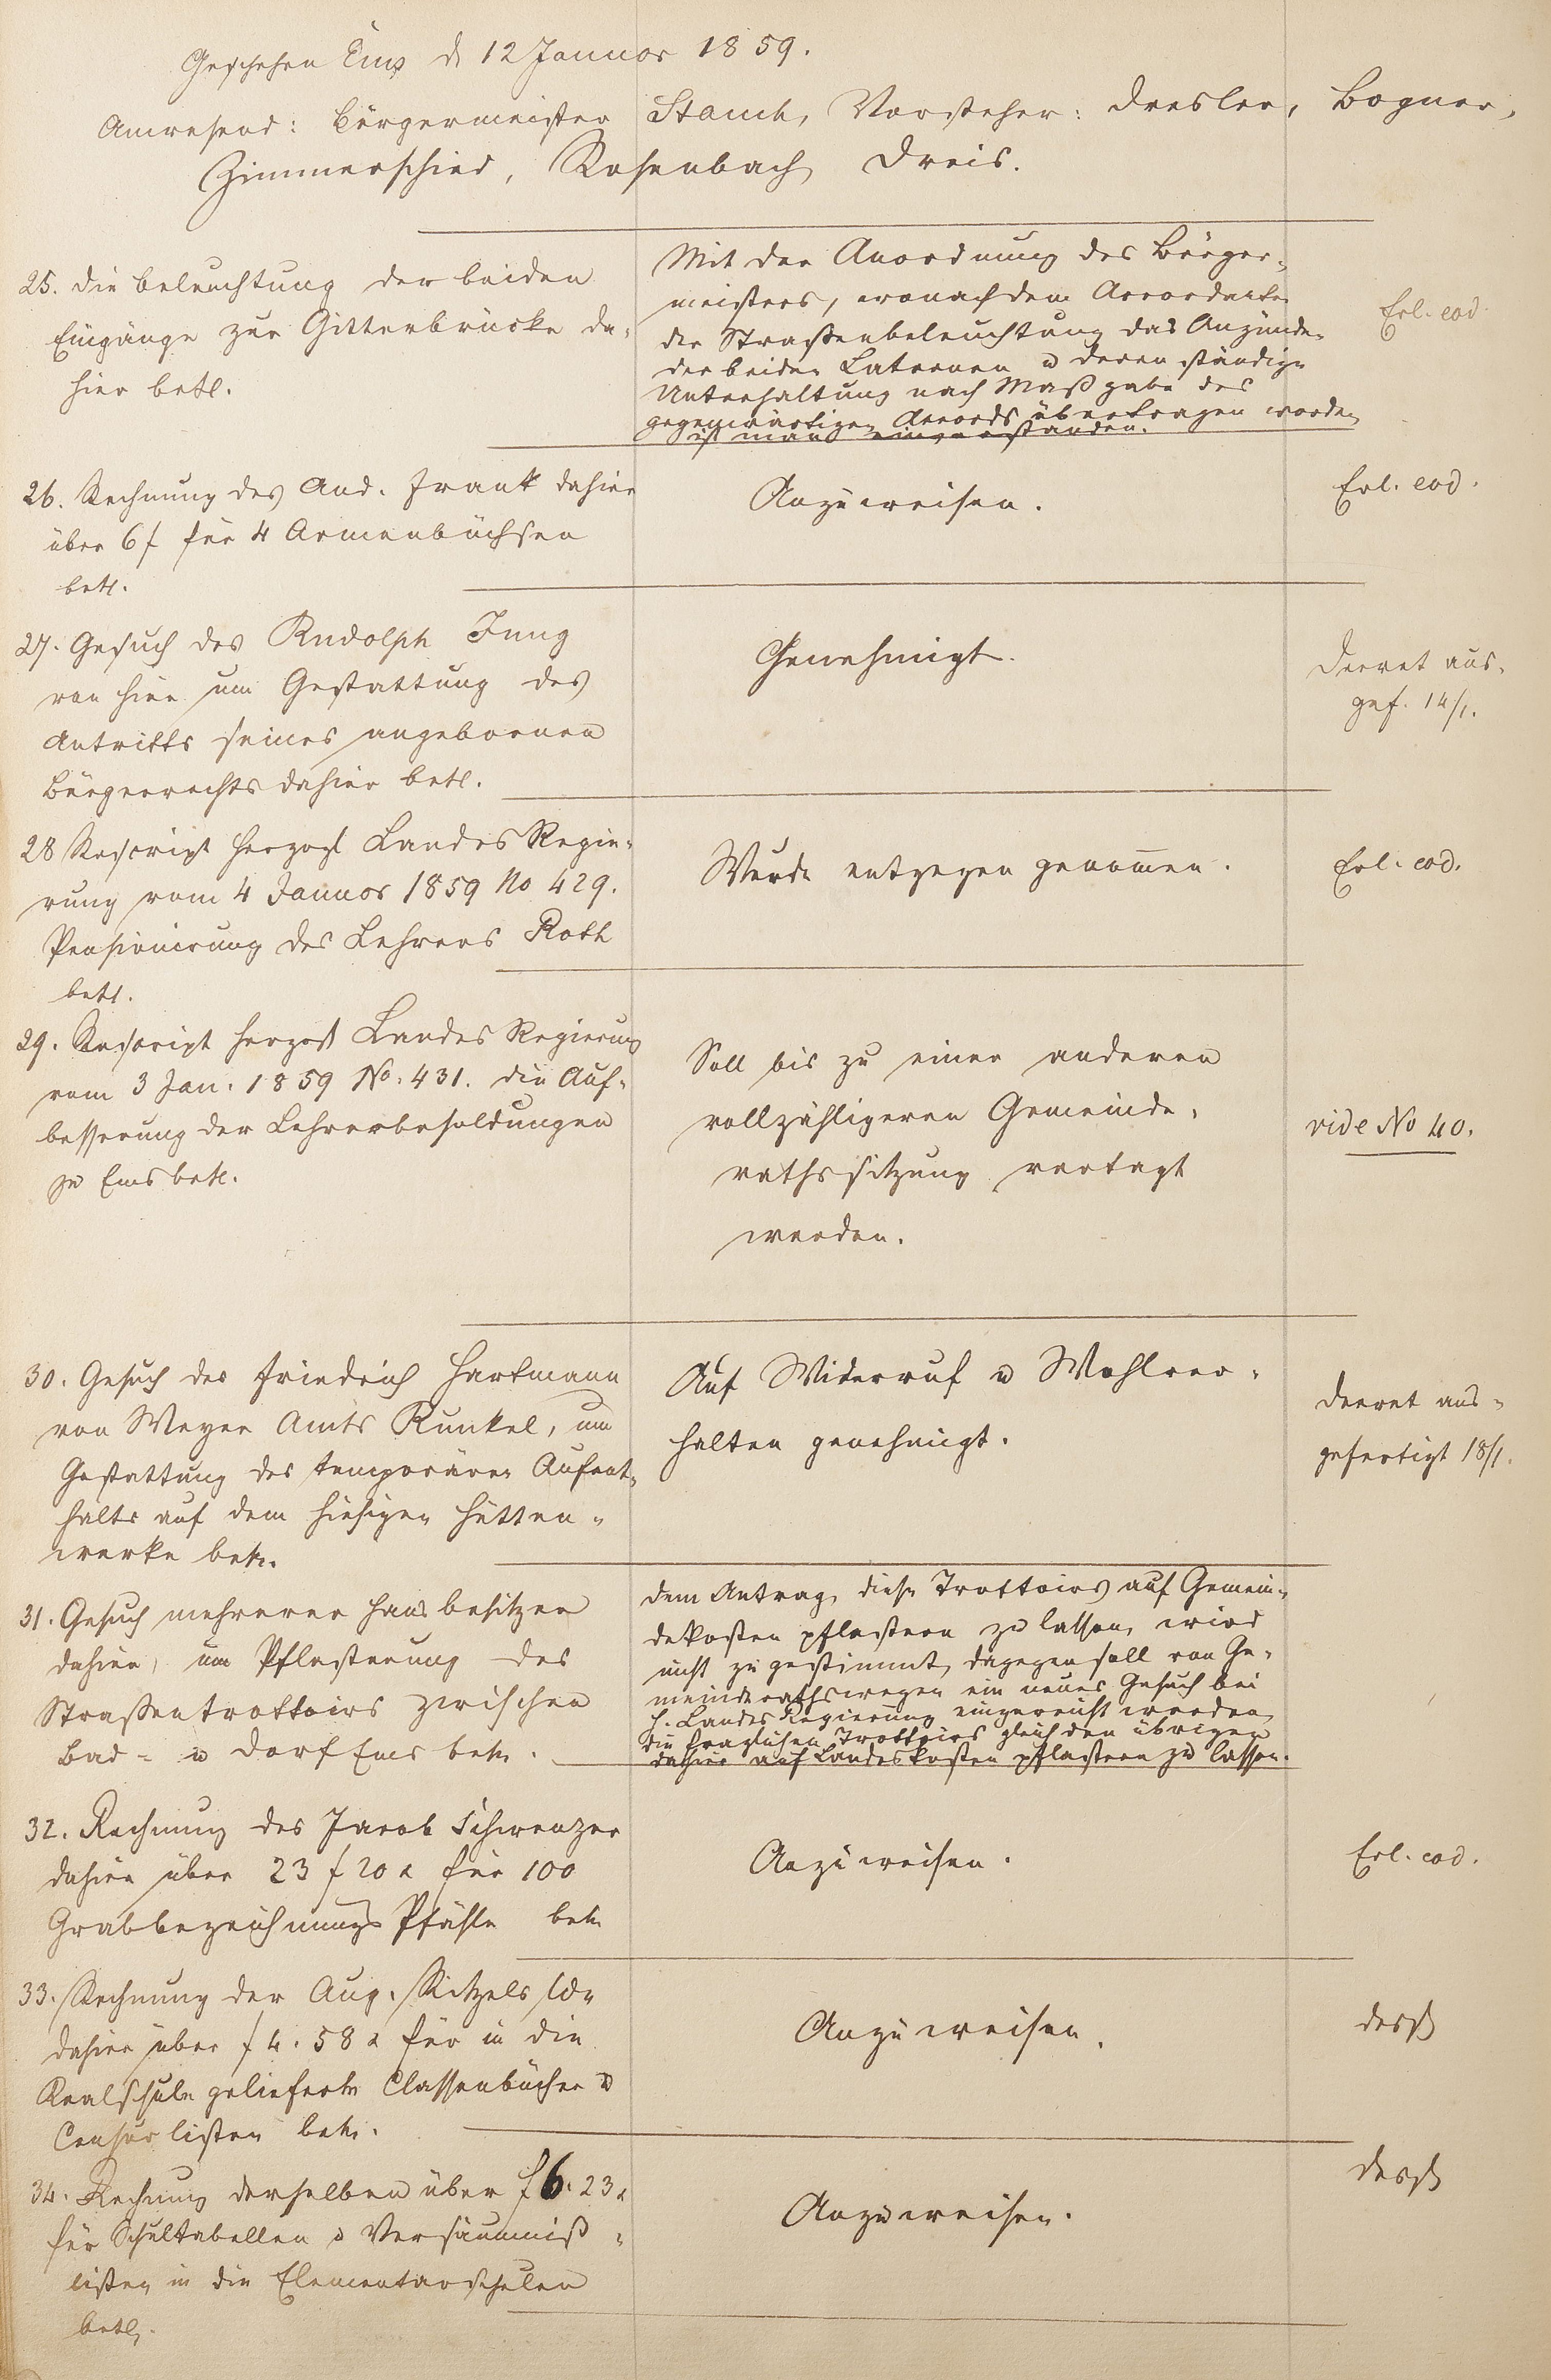 Geschehen Ems d 12 Januar 1859.
Anwesend: Bürgermeister Stauch, Vorsteher: Dresler, Bogner,
Zimmerschied, Rosenbach, Dreis.
25. Die Beleuchtung der beiden
Eingänge zur Gitterbrücke da-
hier betr.
Mit der Anordnung des Bürger-
meisters, wonach dem Accordanten
der Straßenbeleuchtung das Anzünden
der beiden Laternen u deren ständige
Unterhaltung nach Maßgabe des
gegenwärtigen Accords übertragen worden
ist man einverstanden.
Erl. eod.
26. Rechnung des And. Frank dahier
über 6 f für 4 Armenbüchsen
betr.
Anzuweisen.
Erl. eod.
27. Gesuch des Rudolph Jung
von hier um Gestattung des
Antritts seines angebornen
Bürgerrechts dahier betr.
Genehmigt.
Decret aus-
gef. 14/1.
28 Rescript Herzogl Landes Regie-
rung vom 4 Januar 1859 No 429.
Pensionirung des Lehrers Roth
betr.
Wurde entgegen genom̄en.
Erl. eod.
29. Rescript Herzogl Landes Regierung
vom 3 Jan. 1859 No. 431. die Auf-
besserung der Lehrerbesoldungen
zu Ems betr.
Soll bis zu einer anderen
vollzähligeren Gemeinde-
rathssitzung vertagt
werden.
vide No 40.
30. Gesuch des Friedrich Hartmann
von Weyer Amts Runkel, um
Gestattung des temporären Aufent-
halts auf dem hiesigen Hütten-
werke betr.
Auf Widerruf u Wohlver-
halten genehmigt.
Decret aus-
gefertigt 18/1.
31. Gesuch mehrerer Hausbesitzer
dahier, um Pflasterung des
Straßentrottoirs zwischen
Bad- u Dorf Ems betr.
Dem Antrag, diese Trottoirs auf Gemein-
dekosten pflastern zu lassen, wird
nicht zugestimmt, dagegen soll von Ge-
meinderathswegen ein neues Gesuch bei
H. Landes Regierung eingereicht werden,
die fraglichen Trottoirs gleich den übrigen
dahier auf Landeskosten pflastern zu lassen.
32. Rechnung des Jacob Schwenzer
dahier über 23 f 20 x für 100
Grabbezeichnungs Pfähle betr
Anzuweisen.
Erl. eod.
33. Rechnung der Aug. Kitzels
dahier über f 4. 58 x für in die
Realschule gelieferte Classenbücher u
Censurlisten betr.
Anzuweisen.
desgl
34. Rechnung derselben über f 6. 23 x
für Schultabellen u Versäumniß-
listen in die Elementarschulen
betr.
Anzuweisen.
desgl